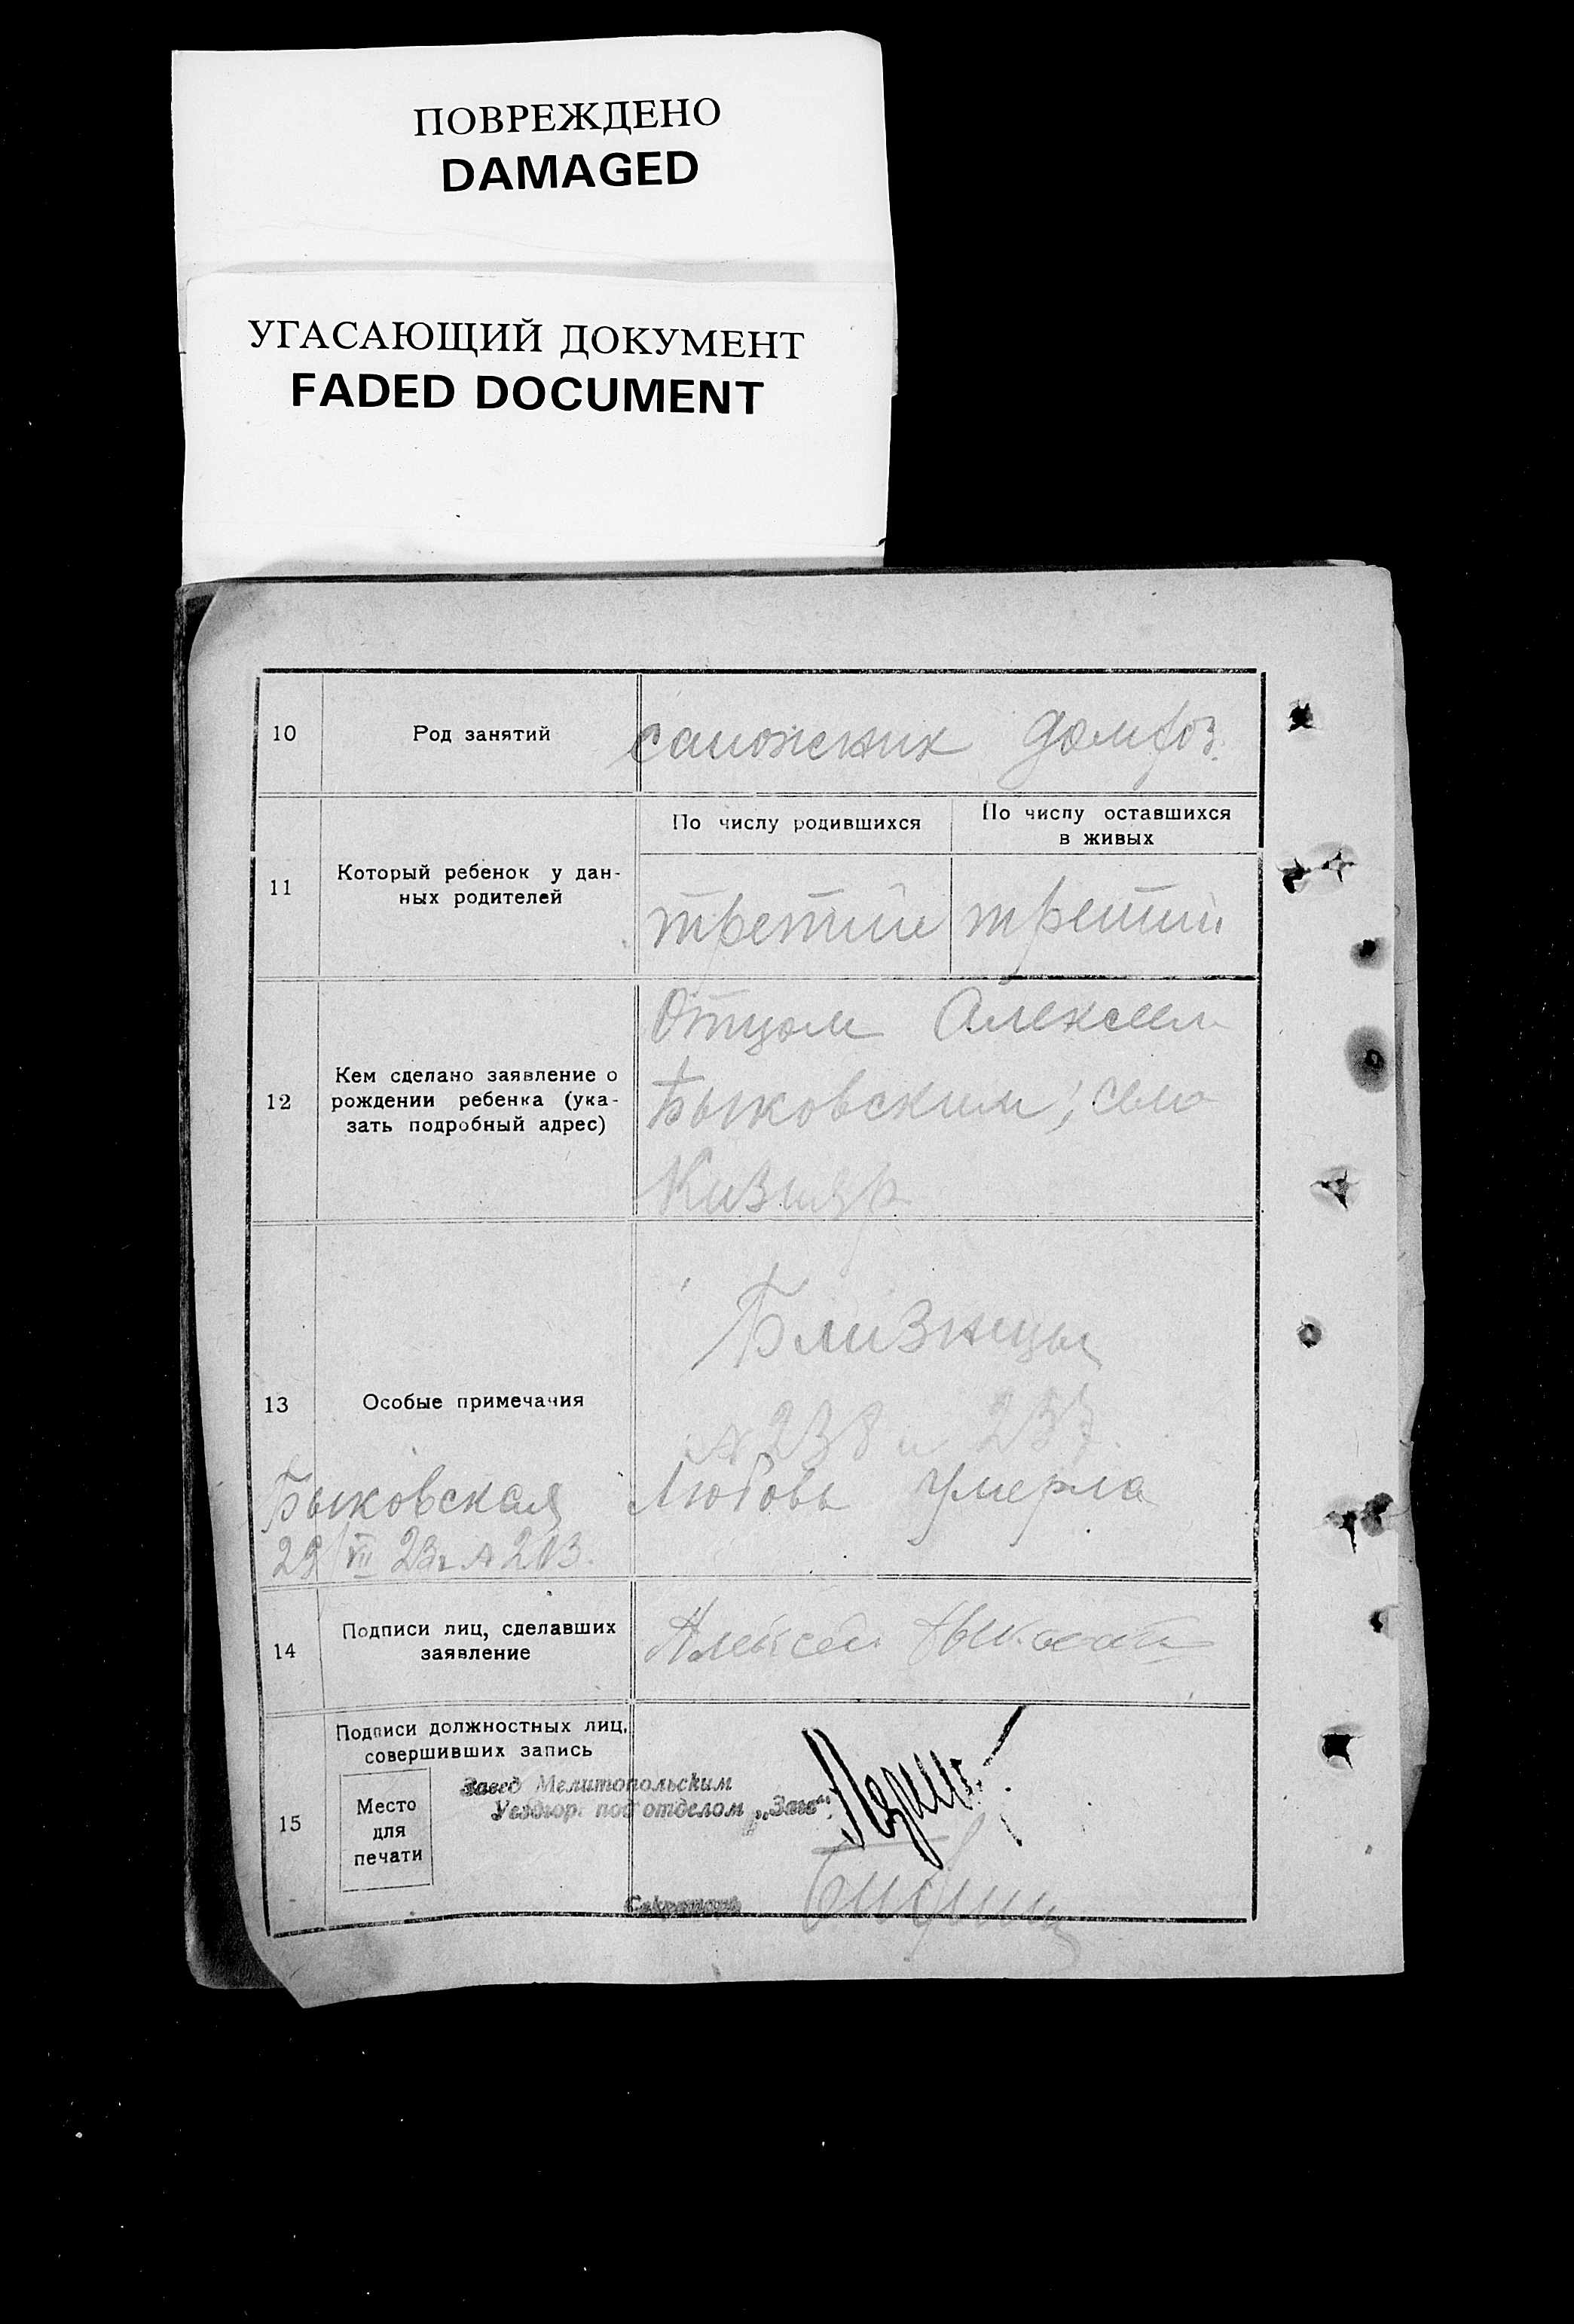 ПОВРЕЖДЕНО
DAMAGED
УГАСАЮЩИЙ ДОКУМЕНТ
FADED DOCUMENT
10
Род занятий
сапожник домхоз.
11
Который ребенок у дан-
ных родителей
По числу родившихся
По числу оставшихся
в живых
третий
третий
12
Кем сделано заявление о
рождении ребенка (ука-
зать подробный адрес)
Отцом Алексеем
Быковским; село
Кизияр
13
Особые примечания
Близнецы
№ 238 и 237.
Быковская Любовь умерла
29/VII 23г № 203.
14
Подписи лиц, сделавших
заявление
Алексей
15
Подписи должностных лиц,
совершивших запись
Место
для
печати
Завед Мелитопольским
Уездгор. подотделом „Загс“
Секретарь